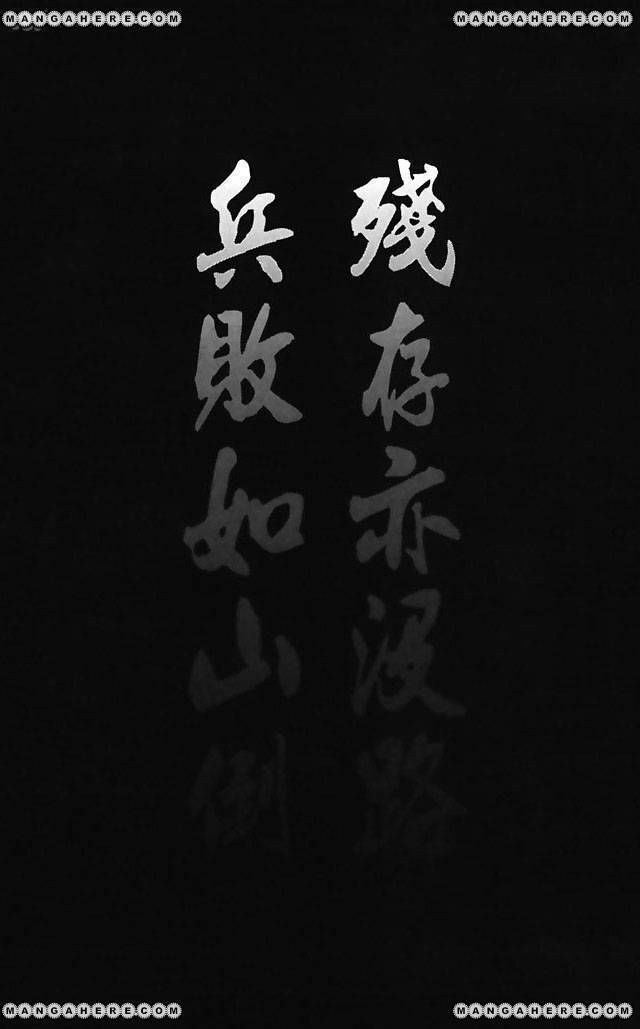 MANGAHERE.COM
MANGAHERE.COM
殘存亦没路
兵敗如山倒
MANGAHERE.COM
MANGAHERE.COM